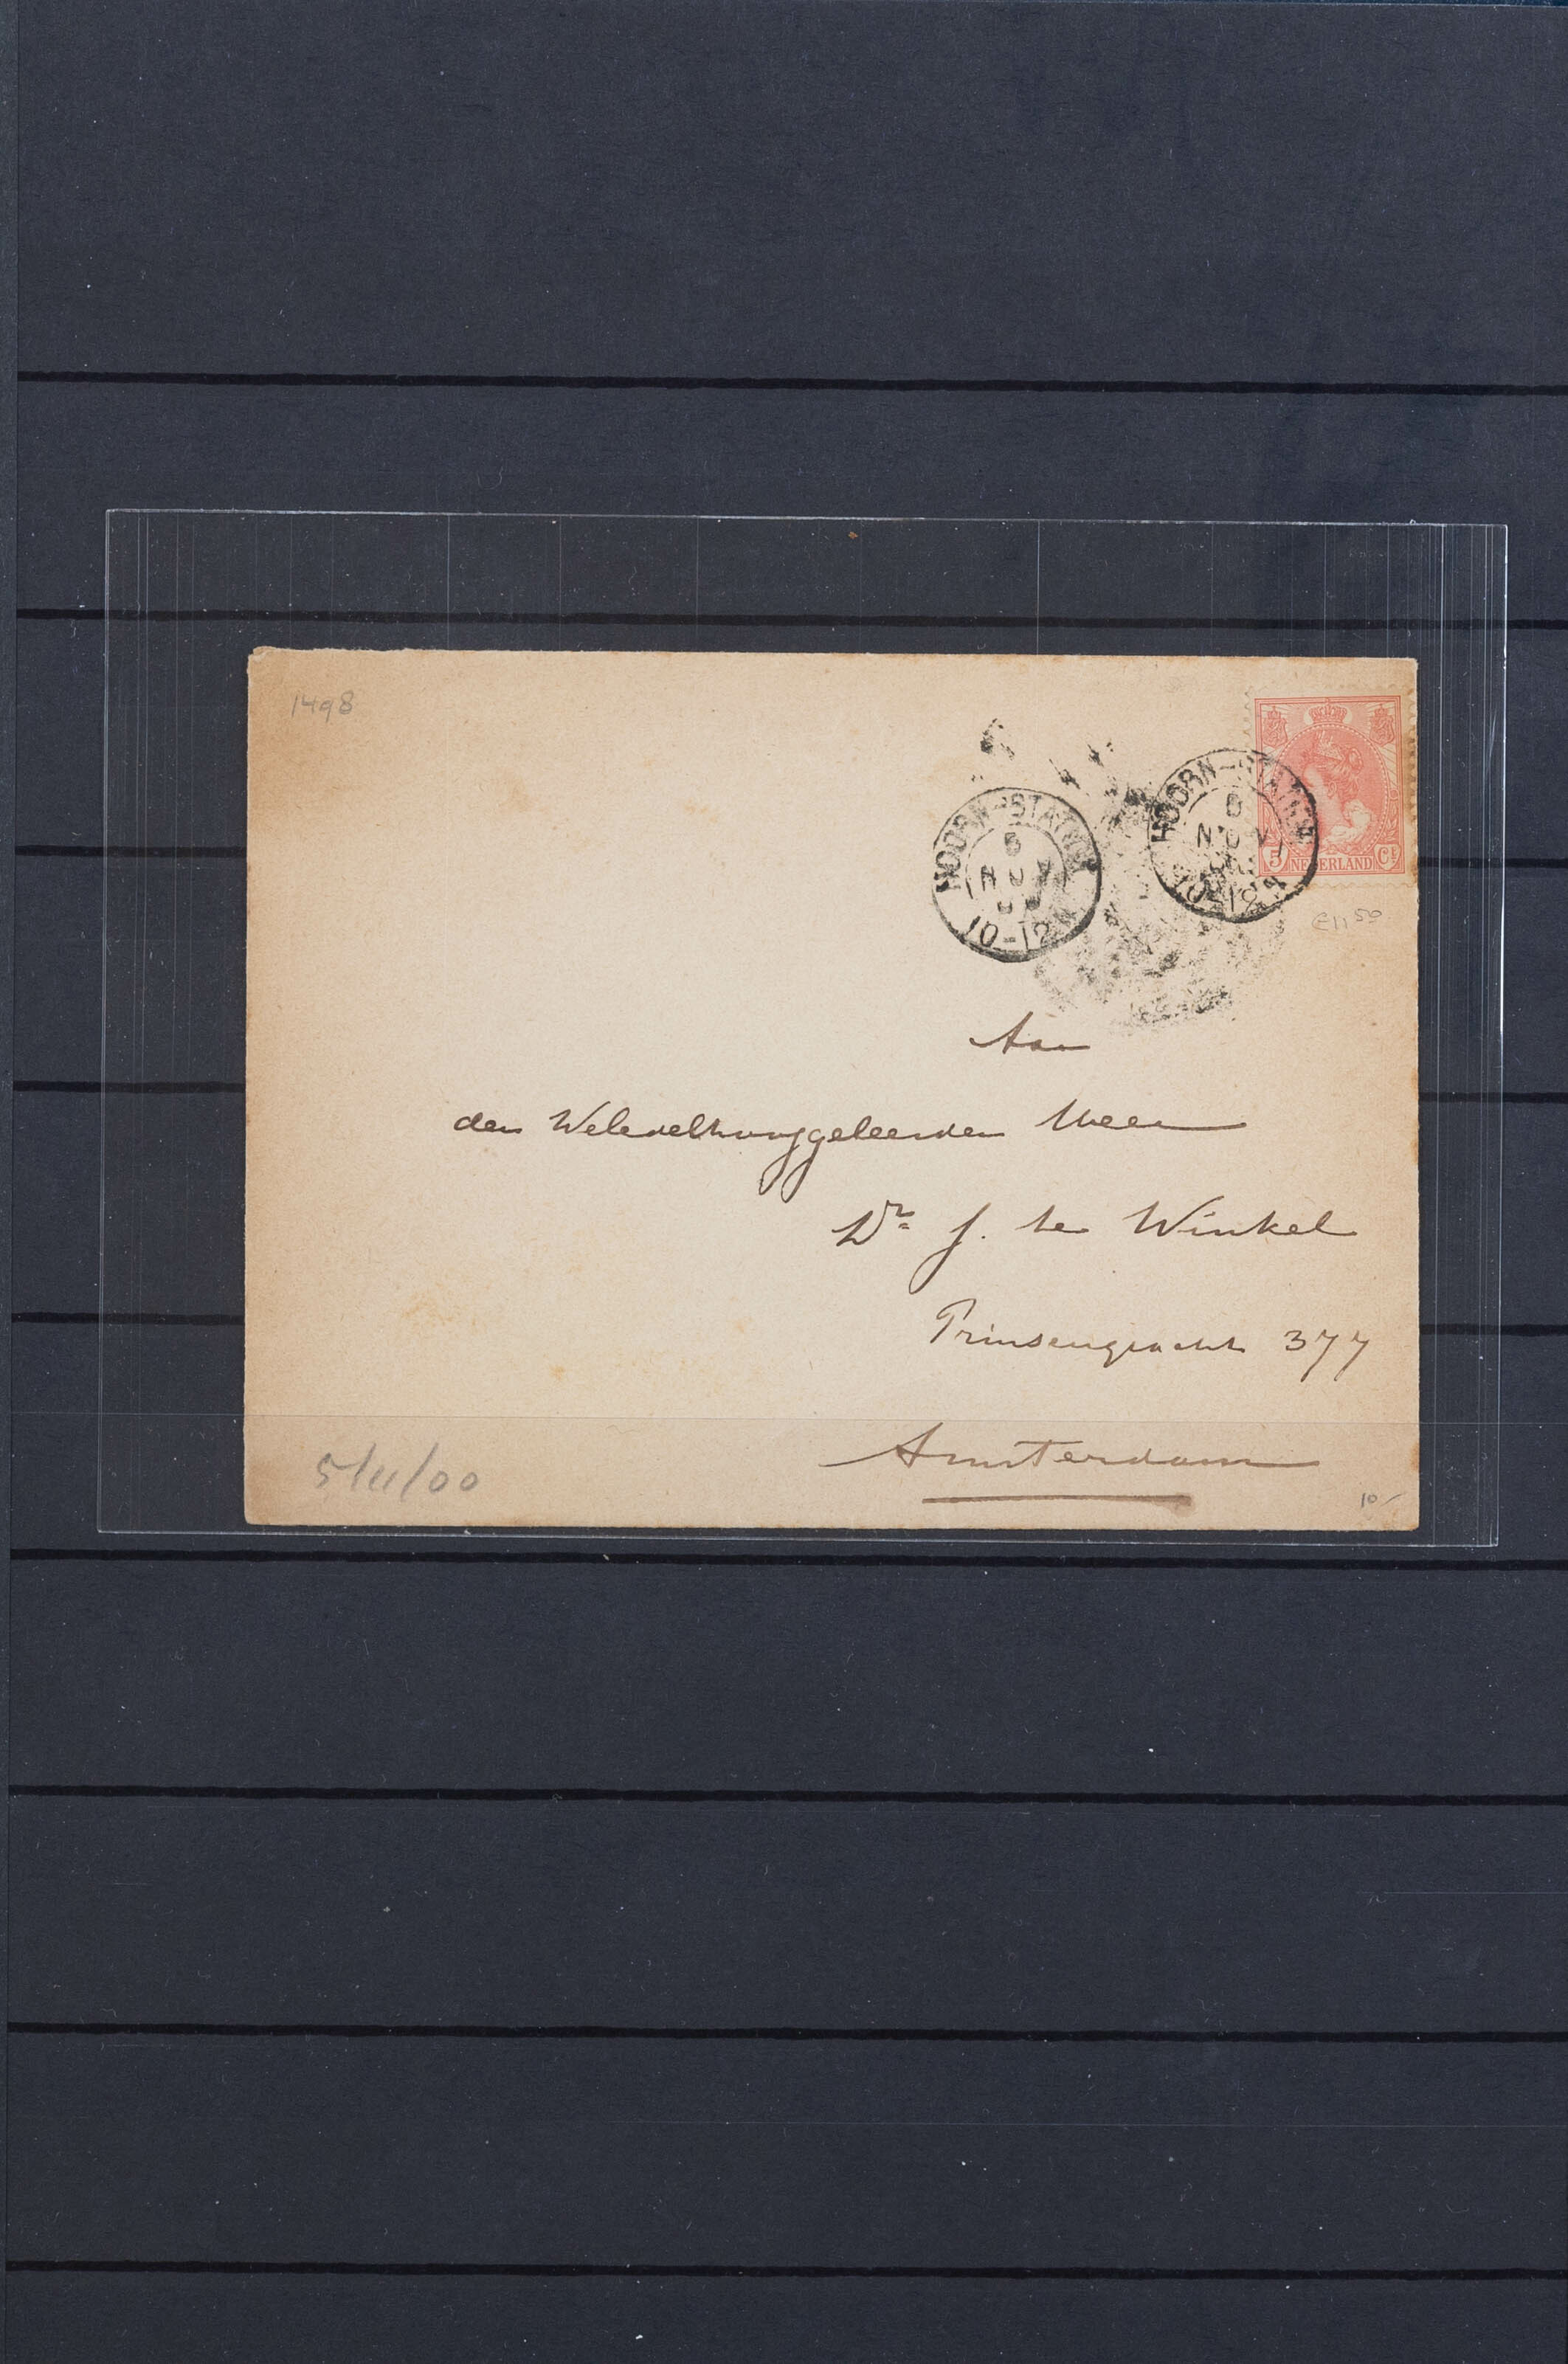 1498
HOORN-STATION
5
NOV
00
10-12V
HOORN-STATION
5
NOV
10-12V
5 NEDERLAND Ct
50
Aan
den Weledelhooggeleerden Heer
Dr J. te Winkel
Prinsengracht 377
Amsterdam
5/11/00
10/-